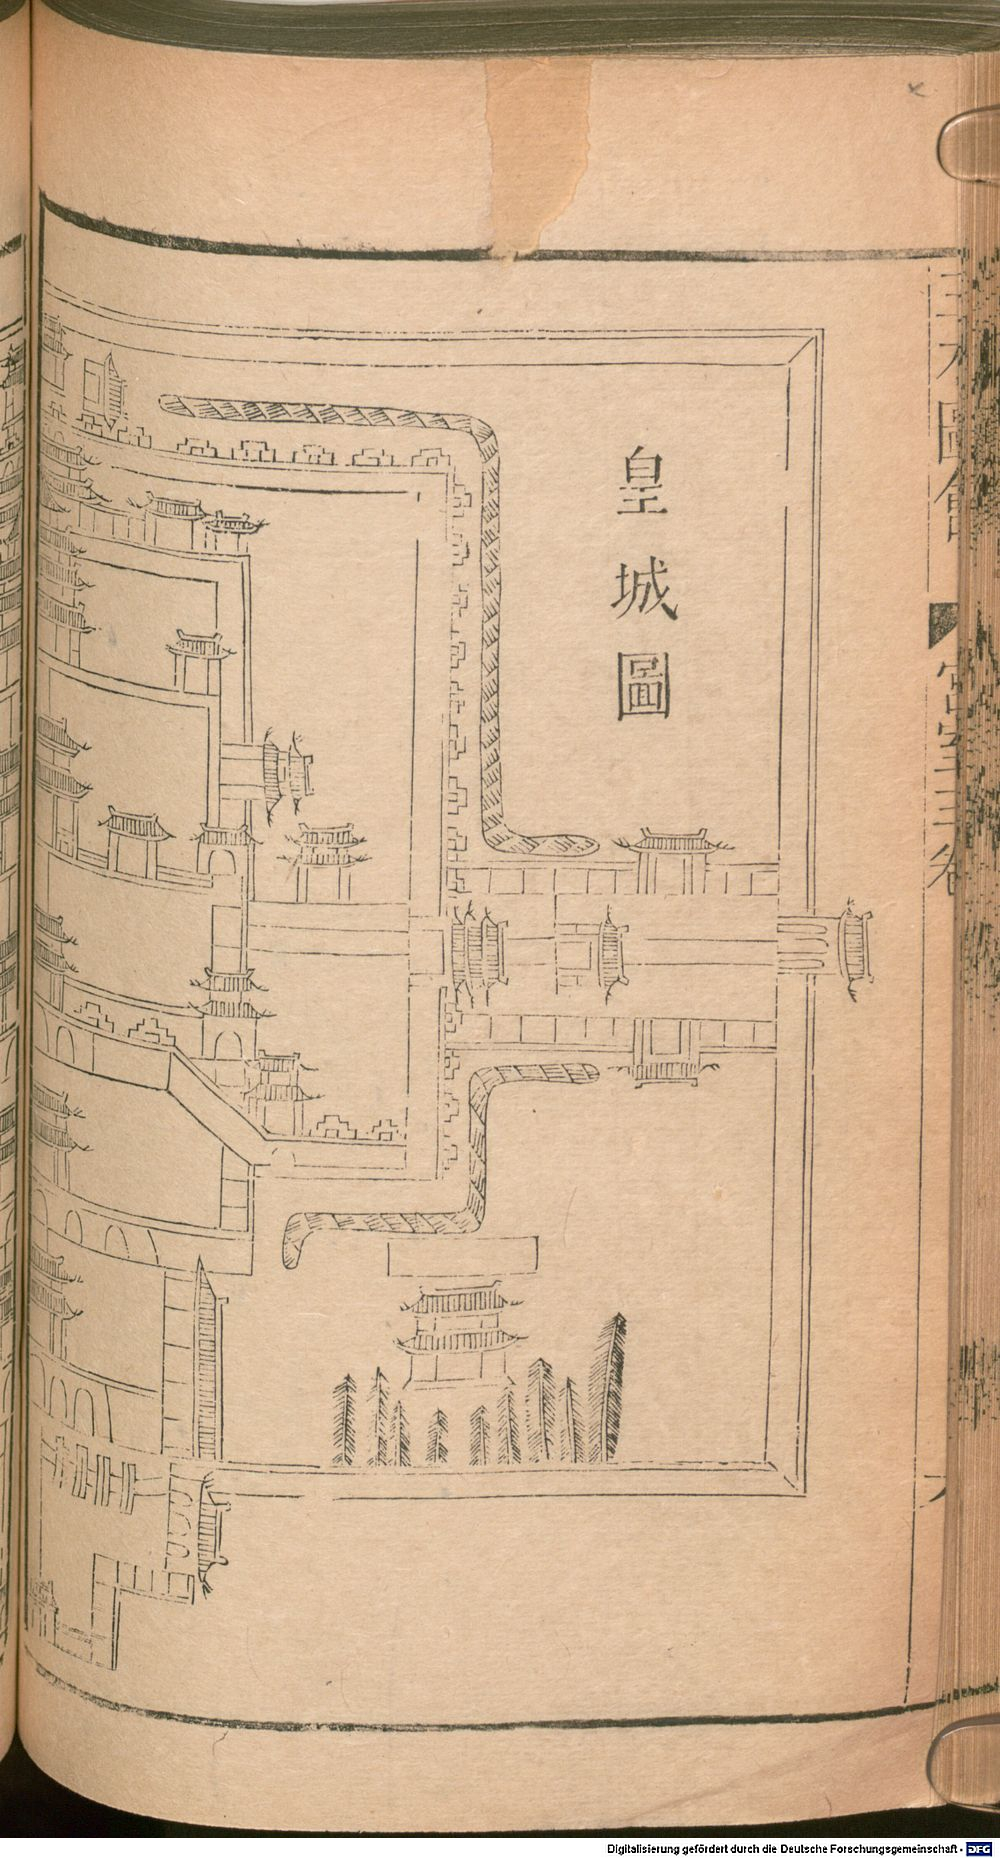 皇城圖
圖會 宮室三卷
Digitalisierung gefördert durch die Deutsche Forschungsgemeinschaft - DFG